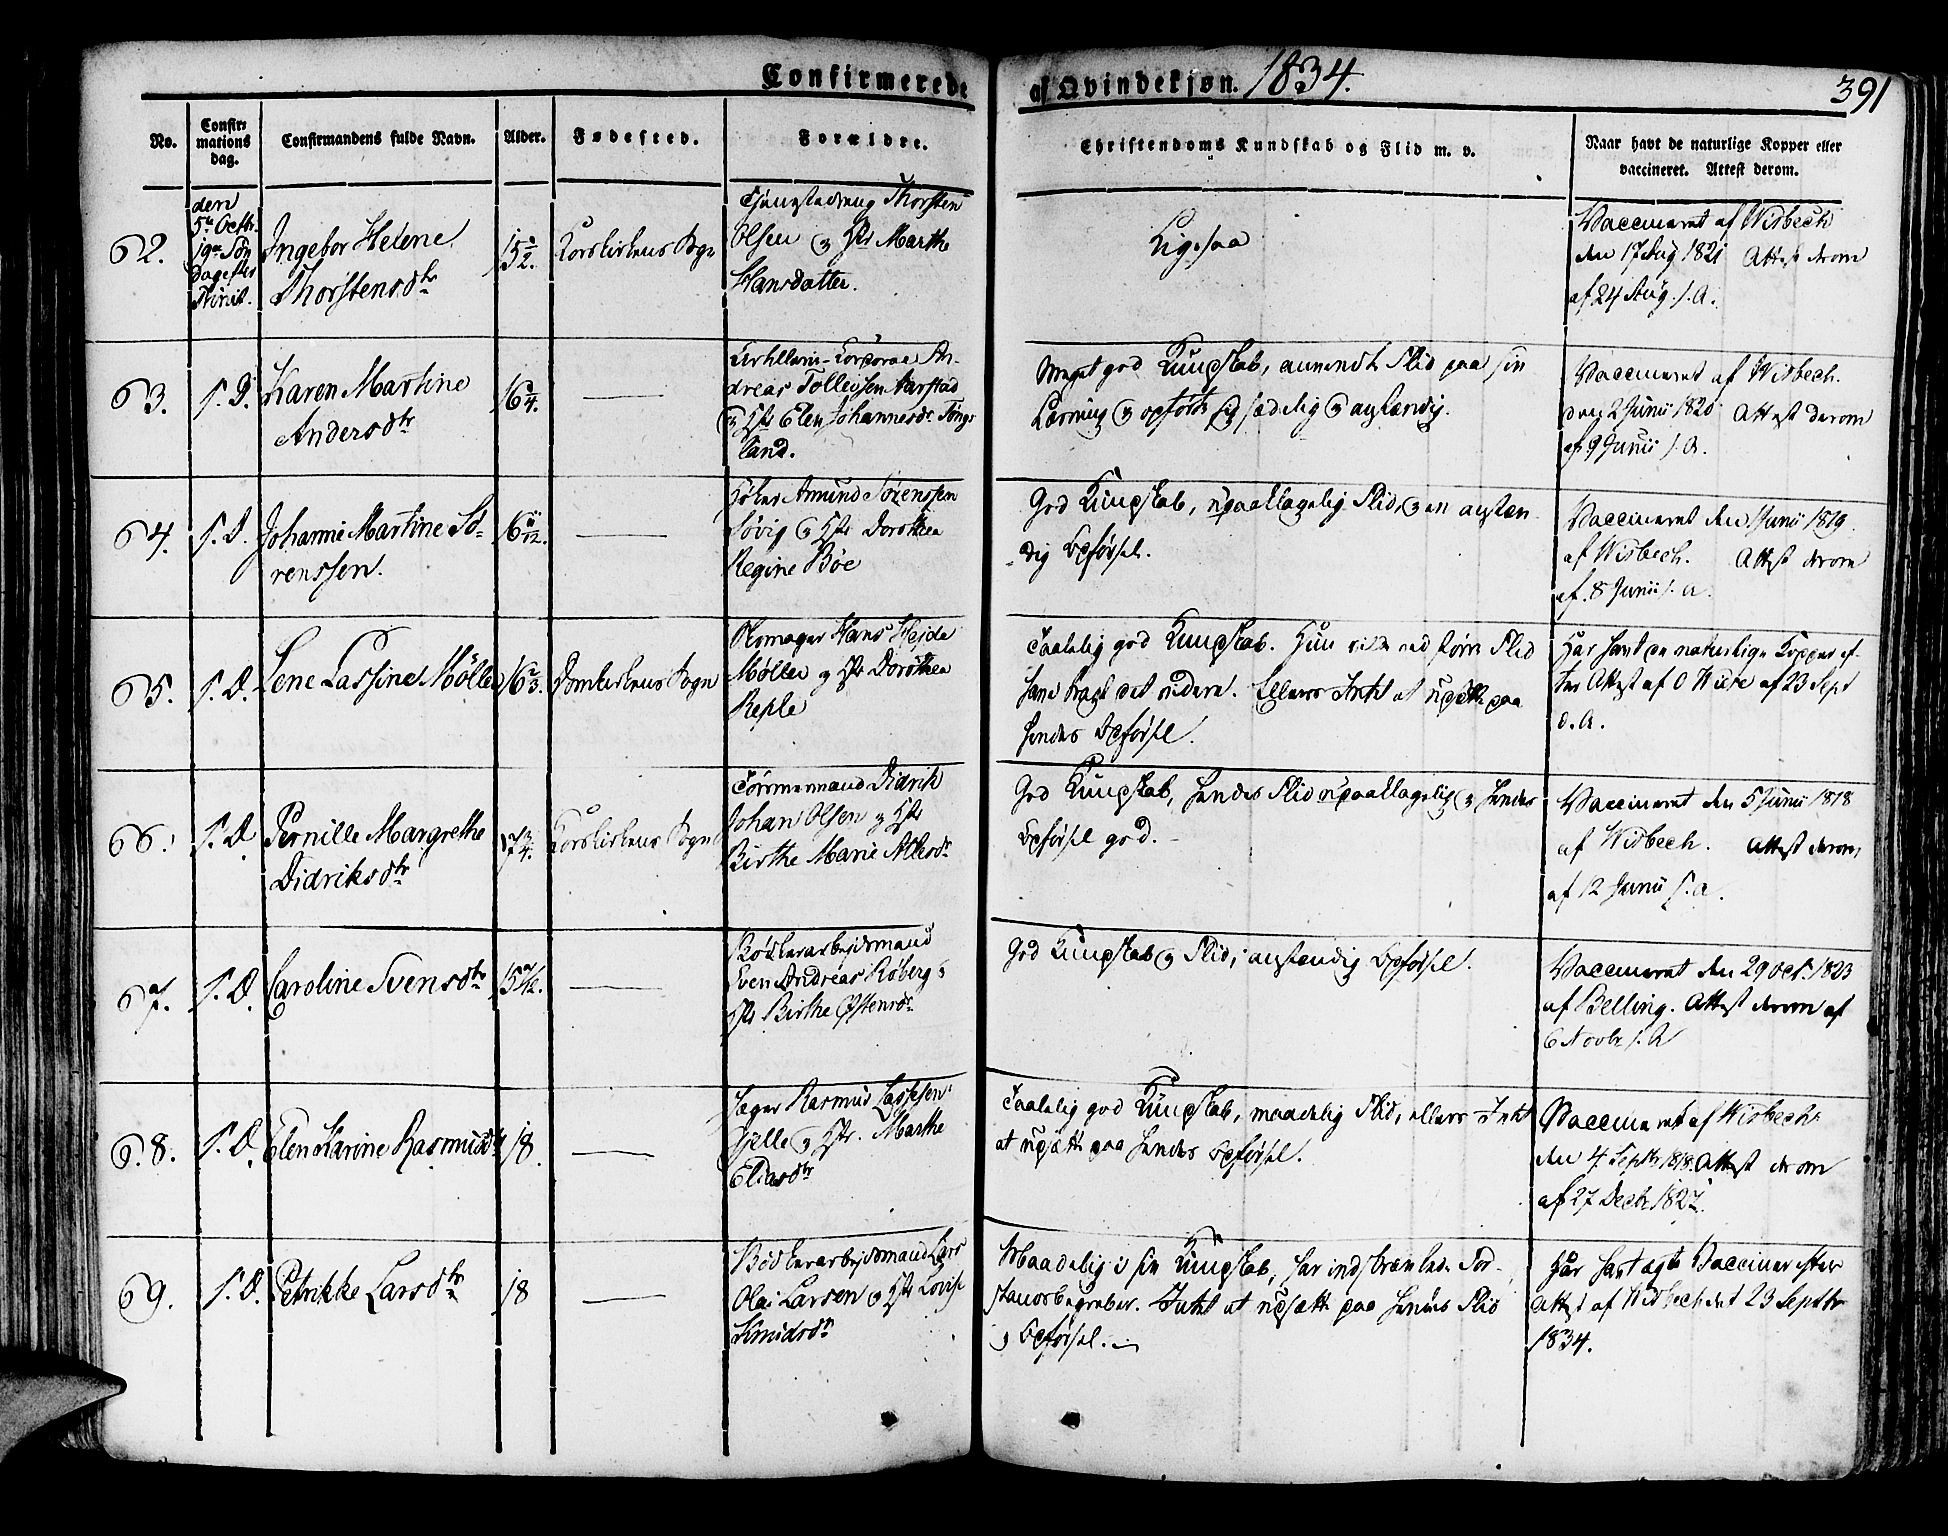 Confirmerede af Qvindekjøn. 1834.
391
No.
Confir-
mations
dag.
Confirmandens fulde Navn.
Alder.
Fødested.
Forældre.
Christendoms Kundskab og Flid m. v.
Naar havt de naturlige Kopper eller
vaccineret. Attest derom.
62.
den
5te Octbr.
19de Søn
dag efter
Trinit.
Ingebor Helene
Thorstensdtr
15 1/2.
Korskirkens Sogn
Thorsten
Olsen og Hst Marthe
Hansdatter.
Ligesaa
Vaccineret af Wisbech
den 17 Aug 1821 Attest derom
af 24 Aug. s. A.
63.
s. D.
Karen Martine
Andersdtr
16 3/4.
Corporal An-
dreas Tollefsen Aarstad
og Hst Elen Johannesdr Tings
land.
Meget god Kundskab, anvendt Flid paa sin
Læsning og opført sig sædelig og anstændig.
Vaccineret af Wisbech.
den 2 Junii 1820 Attest derom
af 9 Junii s. A.
64.
s. D.
Johanne Martine Sø-
renssen.
16 11/12.
Høker Amund Sørenssen
Løvig og Hst Dorothea
Regine Bøe
God Kundskab, upaaklagelig Flid, og en anstæn-
dig Opførsel.
Vaccineret den 1 Junii 1819.
af Wisbech. Attest derom
af 8 Junii s. A.
65.
s. D.
Lene Lassine Möller
16 2/3.
Domkirkens Sogn
Skomager Hans Hejde
Møller og Hst Dorothea
Reple
Taalelig god Kundskab. Hun
Ellers Intet at udsætte paa
hendes Opførsel.
Har havt de naturlige Kopper ef-
ter Attest af O Wiese af 23 Sept
d. A.
66.
s. D
Pernille Margrethe
Didriksdtr
17 3/4.
Korskirkens Sogn
Tømmermand Didrik
Johan Olsen og Hst
Birthe Marie Nilsdr
God Kundskab, hendes Flid upaaklagelig og hendes
Opførsel god.
Vaccineret den 5 Junii 1818
af Wisbech. Attest derom
af 12 Junii s. A.
67.
s. D.
Caroline Svensdtr
Bødkerarbejdsmand
Sven Andreas Røberg og
Hst Birthe Østensdr
God Kundskab og Flid, anstændig Opførsel.
Vaccineret den 29 Oct. 1823
af Belling. Attest derom af
6 Novbr s. A
68.
s. D.
Elen Karine Rasmusdtr
18.
Rasmus Lassesen
Gjelle og Hst. Marthe
Eliasdtr
Taalelig god Kundskab, maadelig Flid, ellers Intet
at udsætte paa hendes Opførsel.
Vaccineret af Wisbech
den 4 Septbr 1818. Attest derom
af 27 Decb. 1827.
69.
s. D.
Petrikke Larsdtr
18
Bødkerarbejdsmand Lars
Olai Larsen og Hst Lovise
Knudsdtr
Maadelig i sin Kundskab, har indskrænkede For-
standsbegreber. Intet at udsætte paa hendes Flid
og Opførsel.
Har havt ægte Vacciner efter
Attest af Wisbech det 23 Septbr
1834.